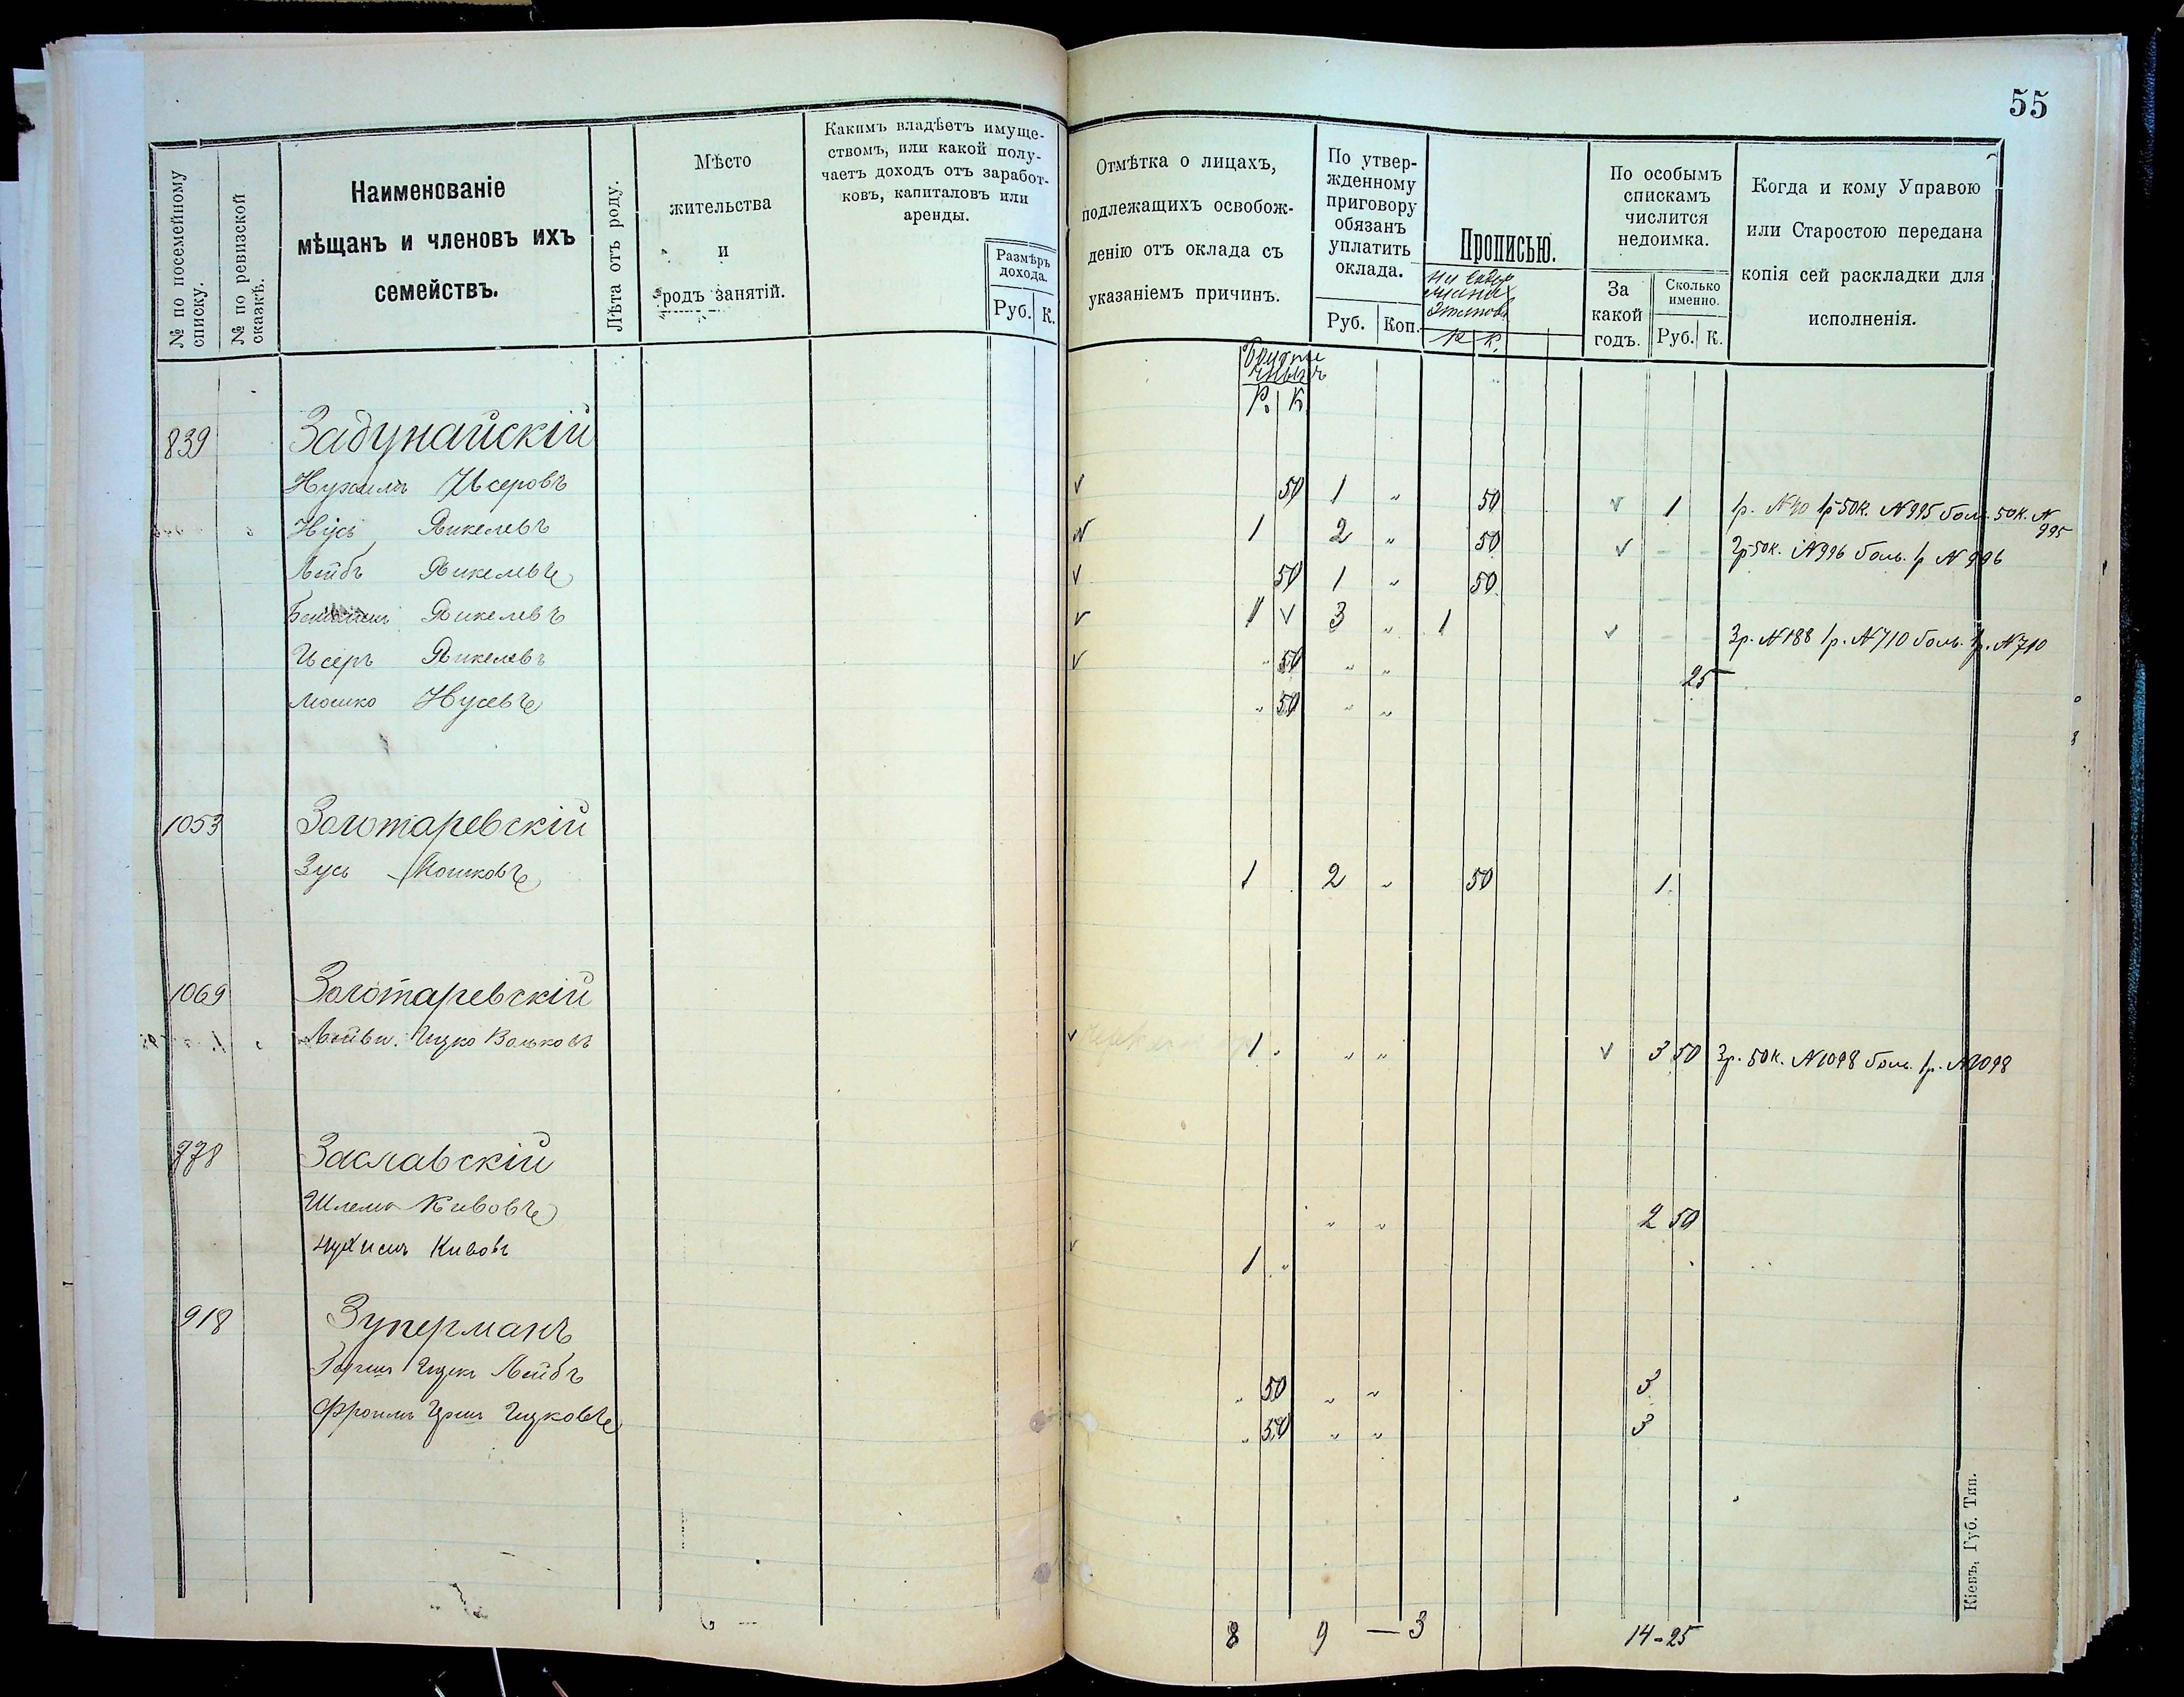 55
№ по посемейному списку.
№ по ревизской сказкѣ.
Наименованіе
мѣщанъ и членовъ ихъ
семействъ.
Лѣта отъ роду.
Мѣсто
жительства
и
родъ занятій.
Какимъ владѣетъ имуще-
ствомъ, или какой полу-
чаетъ доходъ отъ заработ-
ковъ, капиталовъ или
аренды.
Размѣръ
дохода.
Руб. К.
Отмѣтка о лицахъ,
подлежащихъ освобож-
денію отъ оклада съ
указаніемъ причинъ.
По утвер-
жденному
приговору
обязанъ
уплатить
оклада.
Руб. Коп.
Прописью.
На содер
Р К.
По особымъ
спискамъ
числится
недоимка.
За
какой
годъ.
Сколько
именно.
Руб. К.
Когда и кому Управою
или Старостою передана
копія сей раскладки для
исполненія.
Р. К
839 Задунайскій
Нухимъ Исеровъ 50 1 " 50 1 1р. №40 1р 50к. №995 боль. 50к. № 995
Нусь Янкелевъ 1 2 " 50 2р 50к. №996 боль. 1р №996
Лейбъ Янкелевъ 50 1 " 50
Янкелевъ 1 3 " 1 3р. №188 1р. №710 боль. 1р. №710
Исеръ Янкелевъ " 50 " " 25
Мошко Нусевъ " 50 " "
1053 Золотаревскій
Зусь Мошковъ 1 2 " 50 1
1069 Золотаревскій
Лейви. Ицко Вольковъ 1 " " " 3 50 3р. 50к. №1098 боль. 1р. №1098
778 Заславскій
Шлема Кивовъ " " 2 50
Нухимъ Кивовъ 1 "
918 Зуперманъ
Ицко Лейбъ " 50 " " 3
Фроимъ Ицковъ " 50 " " 3
8 9 — 3 14-25
Кіевъ, Губ. Тип.